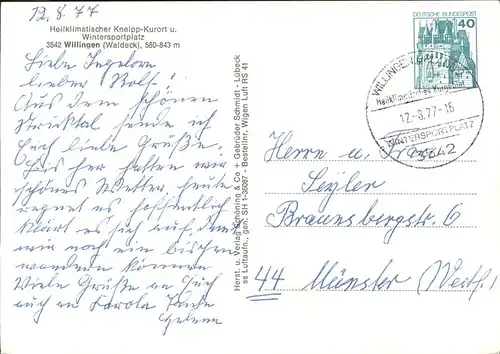 12.8.77
Heilklimatischer Kneipp-Kurort u.
Wintersportplatz
3542 Willingen (Waldeck), 560-843 m
Liebe Ingelore
lieber Rolf!
Aus dem schönen
Stryktal sende ich
Euch liebe Grüße.
Bis her hatten wir
schönes Wetter, heute
regnet es hoffentlich
klärt es sich auf, dam
wir noch ein bischen
wandern können
Viele Grüße an Euch
auch an Carola Tante
Helene
Herst. u. Verlag Schöning & Co + Gebrüder Schmidt - Lübeck
ss Luftaufn., gen. SH 1-36087 - Bestellnr. Wigen Luft RS 41
DEUTSCHE BUNDESPOST
40
WILLINGEN
Heilklimatischer Kurort
12-8.77-16
WINTERSPORTPLATZ
3542
Herrn u. Frau
Seyler
Braunsbergstr. 6
44 Münster (Westf.)